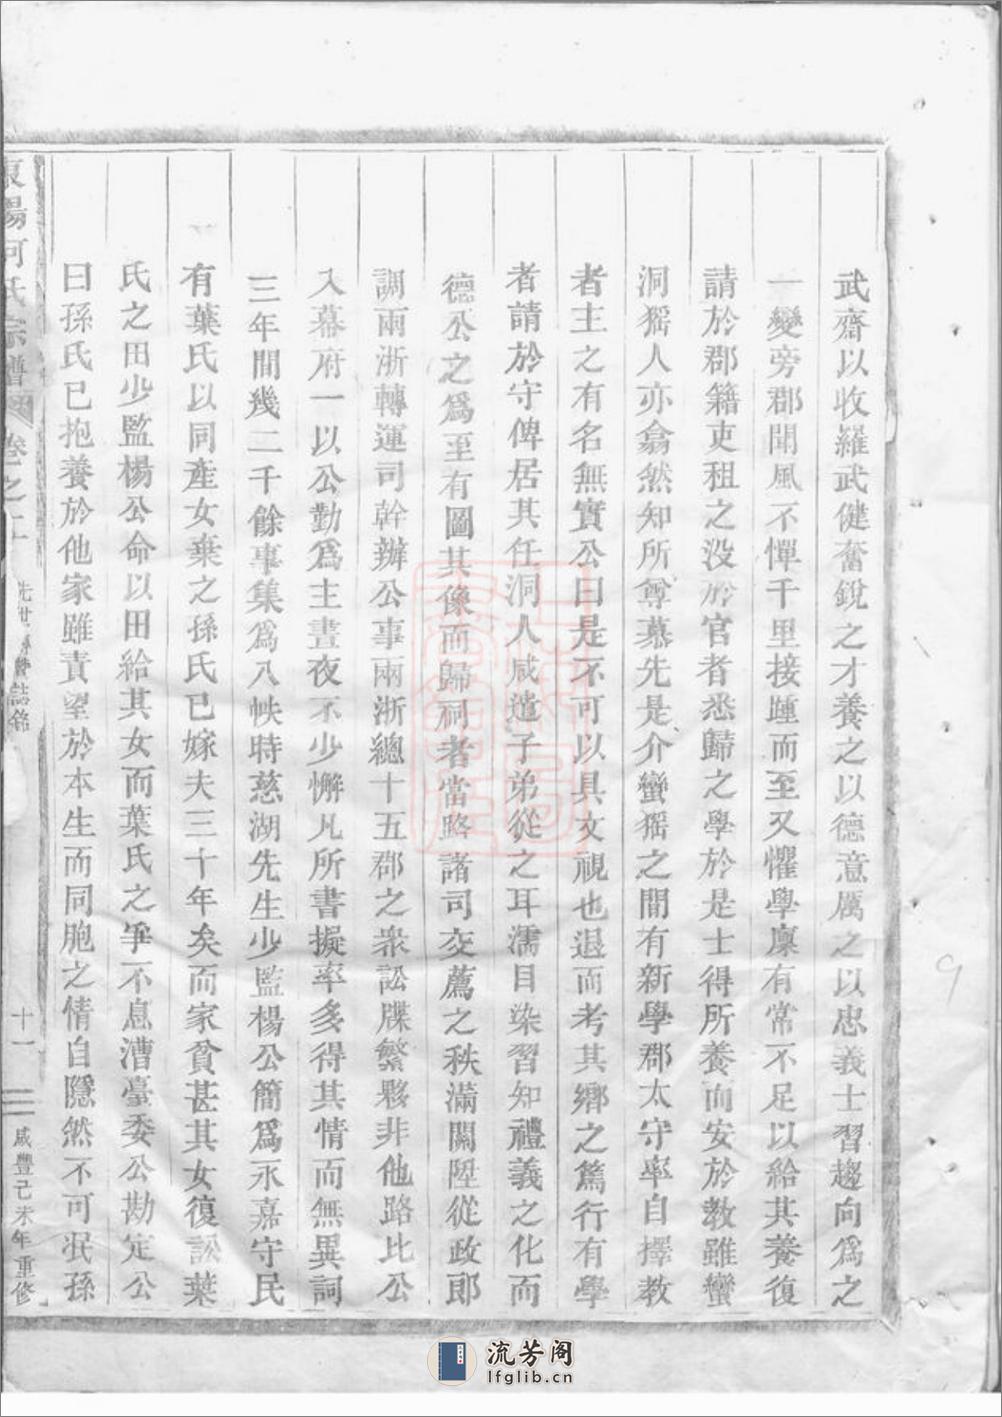 武齋以收羅武健奮銳之才養之以德意厲之以忠義士習趨向爲之
一變旁郡聞風不憚千里接踵而至又懼學廩有常不足以給其養復
請於郡籍吏租之没於官者悉歸之學於是士得所養而安於教雖蠻
洞猺人亦翕然知所尊慕先是介蠻猺之間有新學郡太守率自擇教
者主之有名無實公曰是不可以具文視也退而考其鄉之篤行有學
者請於守俾居其任洞人咸遣子弟從之耳濡目染習知禮義之化而
德公之爲至有圖其像而歸祠者當路諸司交薦之秩滿關陞從政郎
調兩浙轉運司幹辦公事兩浙總十五郡之衆訟牒繁夥非他路比公
入幕府一以公勤爲主晝夜不少懈凡所書擬率多得其情而無異詞
三年間幾二千餘事集爲八帙時慈湖先生少監楊公簡爲永嘉守民
有葉氏以同產女棄之孫氏已嫁夫三十年矣而家貧甚其女復訟葉
氏之田少監楊公命以田給其女而葉氏之爭不息漕臺委公勘定公
曰孫氏已抱養於他家雖責望於本生而同胞之情自隱然不可泯孫
東陽何氏宗譜 卷之
誌銘
十一
咸豐己未年重修
9
流芳阁
lfglib.cn